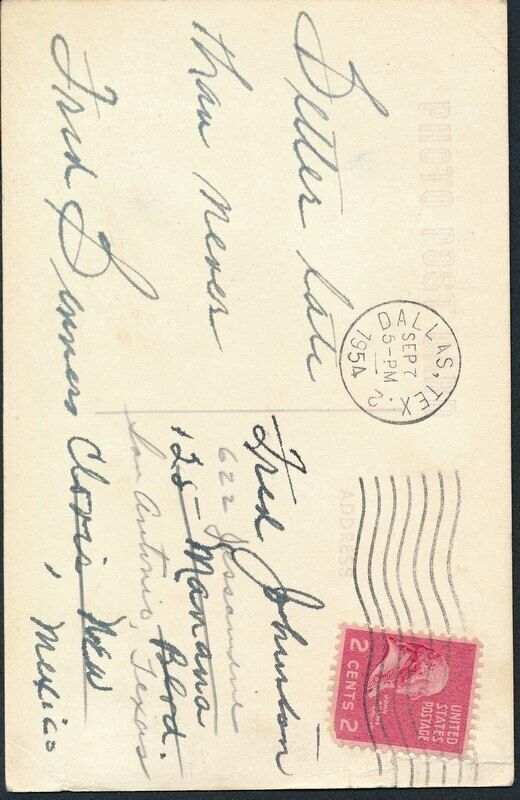 PHOTO POST CARD
Better late
than never
Fred
DALLAS, TEX. 2
SEP 7
5-PM
1954
ADDRESS
UNITED
STATES
POSTAGE
JOHN
ADAMS
2 CENTS 2
Fred Johnston
622 Jessamine
125 Manana Blvd.
San Antonio, Texas
Clovis New
Mexico